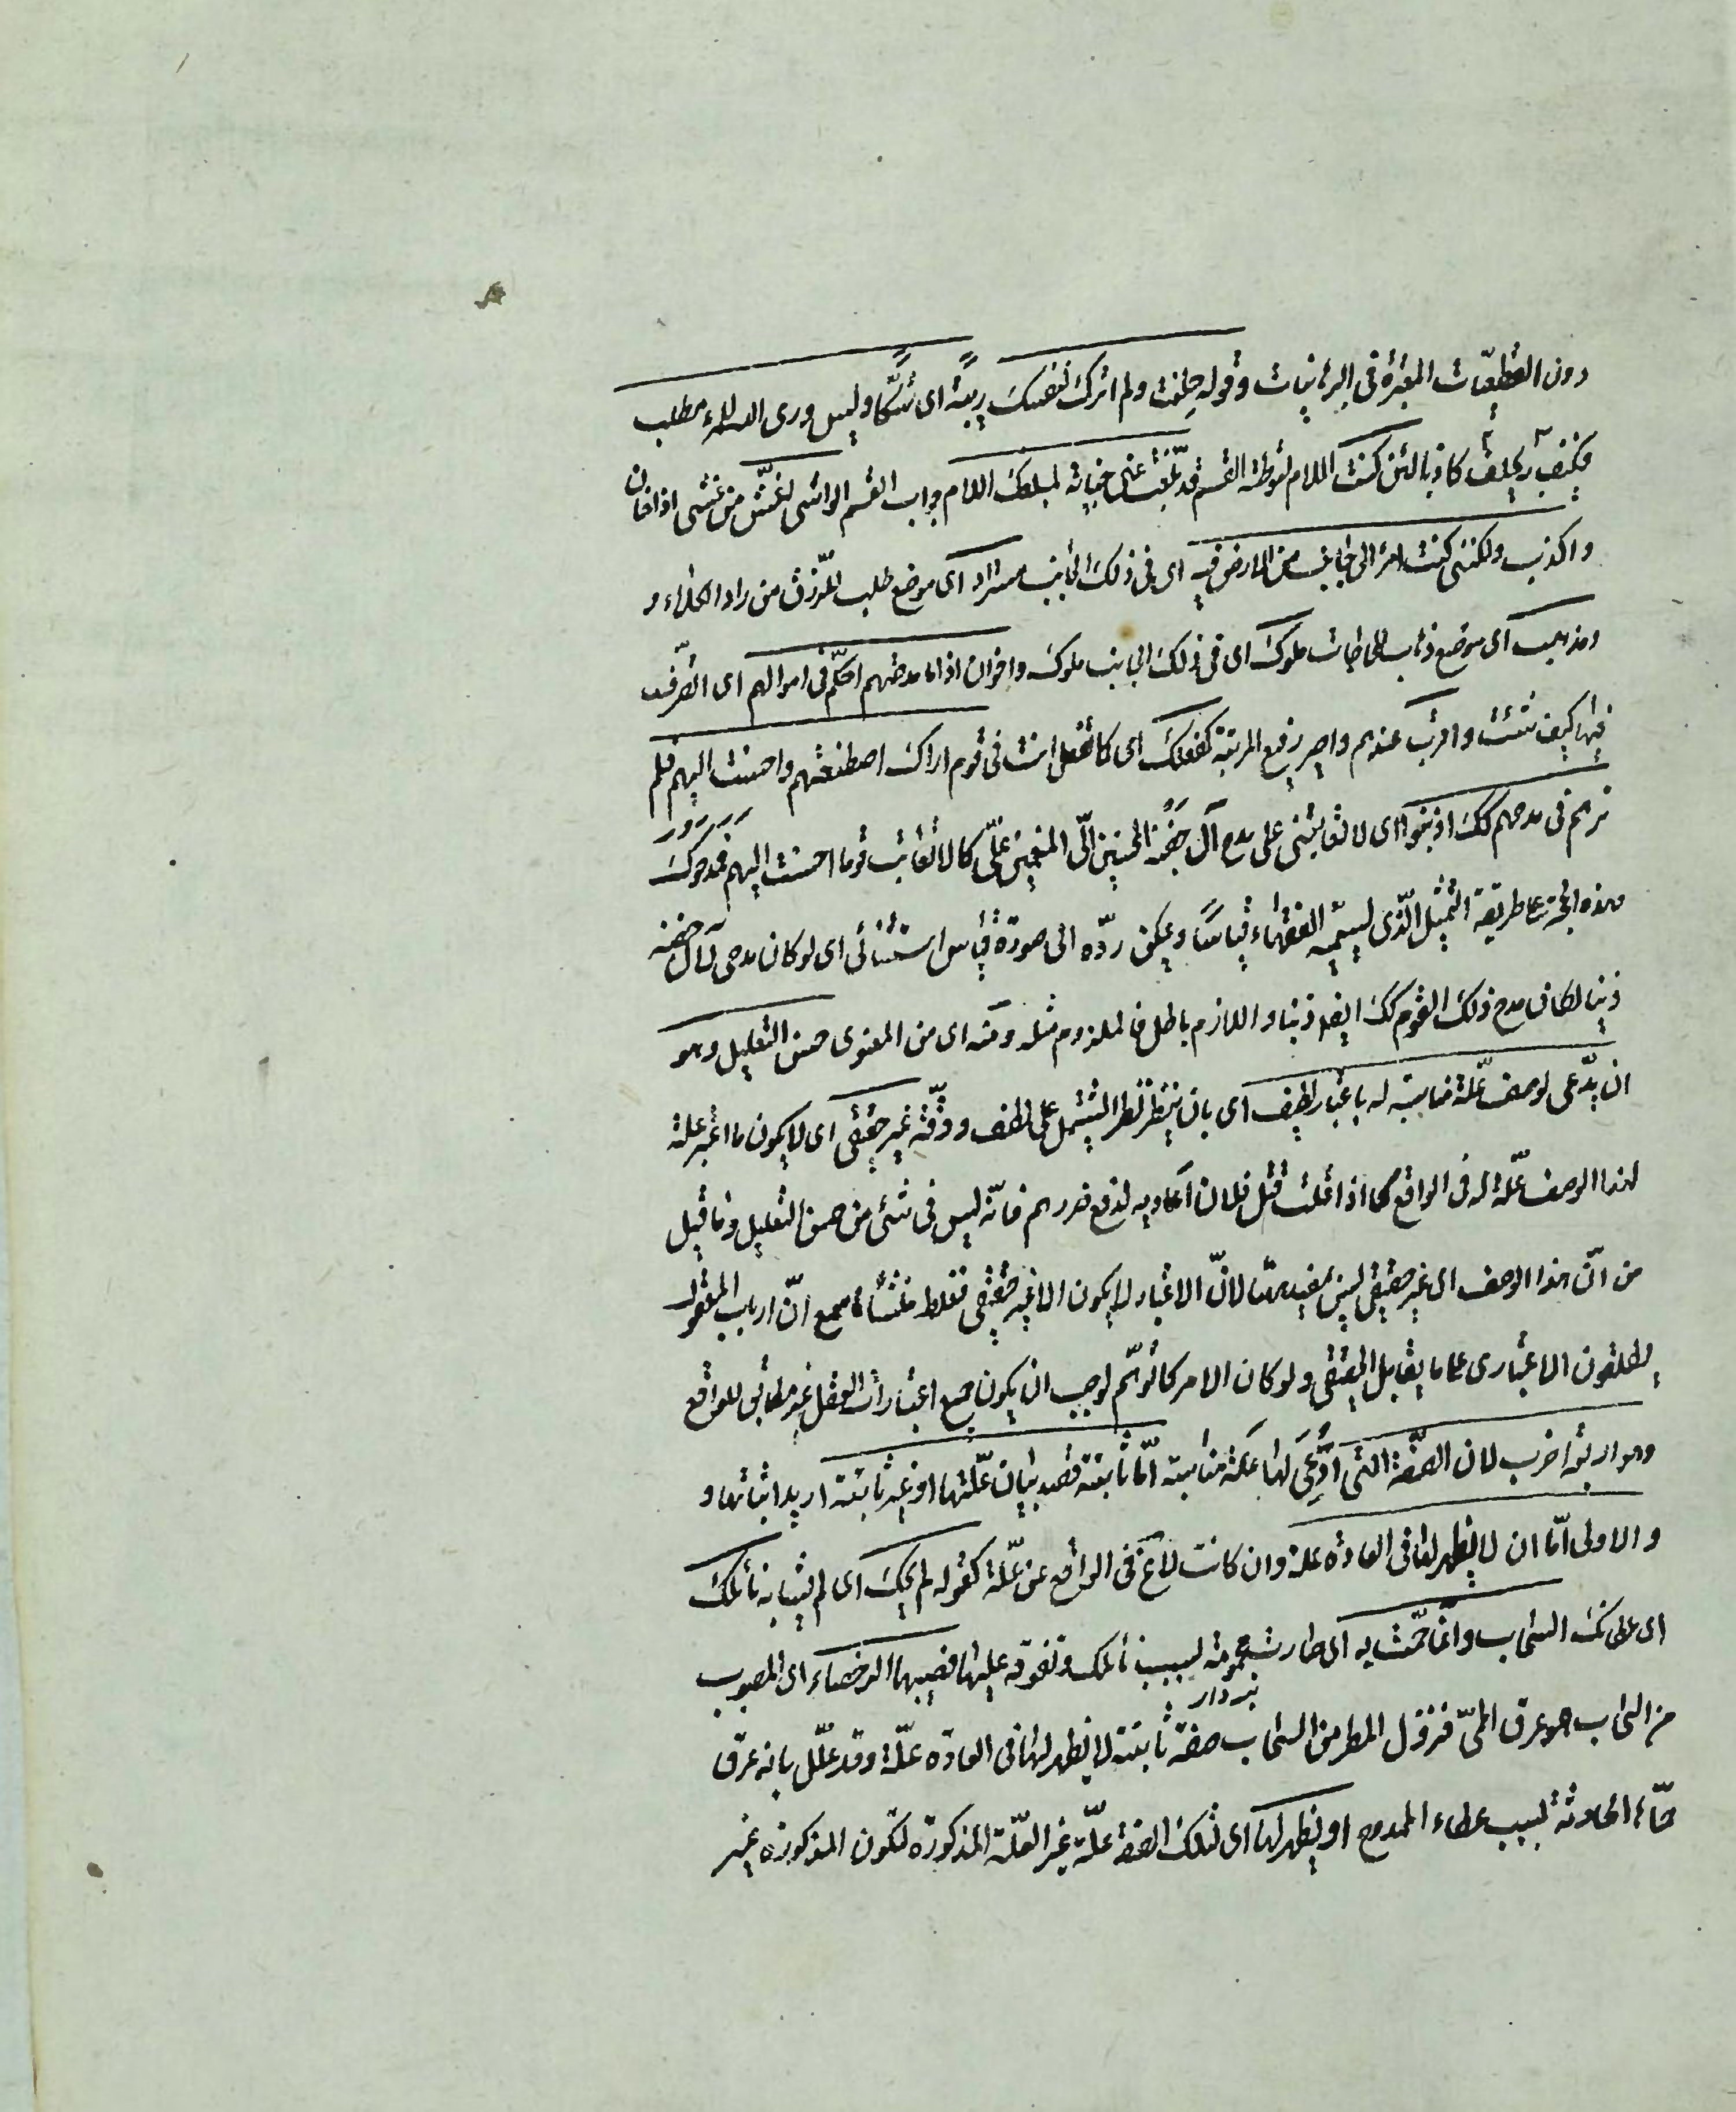 دون القطعيّات المعتبرة فى البرهانيات وقوله حلفت ولم اترك لنفسك ريبةً اى شكًّا وليس ورى الله للمرء مطلب
فكيف يحلف كاذبا لئن كنت اللام لتوطئة القسم قد بلّغت عنى خيانة لمبلغك اللام جواب القسم الواشى اغشّ من غش اذا خان
واكذب ولكننى كنت امرأ لى جانب من الارض فيه اى فى ذلك الجانب مستراد اى موضع طلب الرزق من راد الكلاء و
ومذهب اى موضع ذهاب للحاجات ملوك اى فى ذلك الجانب ملوك واخوان اذا ما مدحتهم احكّم فى اموالهم اى اتصرّف
فيها كيف شئت واقرب عندهم واصير رفيع المرتبة كفعلك اى كما تفعل انت فى قوم اراك اصطنعتهم واحسنت اليهم فلم
ترهم فى مدحهم لك اذنبوا اى لا تعاتبنى على مدح آل جفنة المحسنين الىّ المنعمين علىّ كما لا تعاتب قوما احسنت اليهم فمدحوك
وهذه الحجة على طريقة التمثيل الّذى يسمّيه الفقهاء قياسًا ويمكن ردّه الى صورة قياس استثنائى اى لو كان مدحى لآل جفنه
ذنبا لكان مدح ذلك القوم لك ايضا ذنبا واللازم باطل فالملزوم مثله ومنه اى من المعنوى حسن التعليل وهو
ان يدّعى لوصف علّة مناسبة له باعتبار لطيف اى بان ينظر نظرا يشتمل على لطف ودقّة غير حقيقى اى لا يكون ما اعتبر علة
لهذا الوصف علّة له فى الواقع كما اذا قلت قتل فلان اعاديه لدفع ضررهم فانّه ليس فى شئ من حسن التعليل وما قيل
من انّ هذا الوصف اى غير حقيقى ليس بمفيد ههنا لانّ الاعتبار لا يكون الا غير حقيقى فغلط منشأه ما سمع انّ ارباب المعقول
يطلقون الاعتبارى على ما يقابل الحقيقى ولو كان الامر كما توهّم لوجب ان يكون جميع اعتبارات العقل غير مطابق للواقع
وهو اربعة اضرب لان الصفة التى ادُّعِىَ لها علّة مناسبة امّا ثابتة قصد بيان علّتها او غير ثابتة اريد اثباتها و
والاولى امّا ان لا يظهر لها فى العادة علة وان كانت لا تخ فى الواقع عن علّة كقوله لم يحك اى لم يشابه نائلك
اى عطائك السحاب وانما حمّت به اى صارت محمومة بسبب نائلك وتفوقه عليها فصبيبها الرحضاء اى المصبوب
من السحاب هو عرق الحمىّ فنزول المطر من السحاب صفة ثابتة لا يظهر لها فى العادة علّة وقد علّل بانه عرق
حمّاها الحادثة بسبب عطاء الممدوح او يظهر لها اى لتلك الصفة علّة غير العلّة المذكورة لتكون المذكورة غير